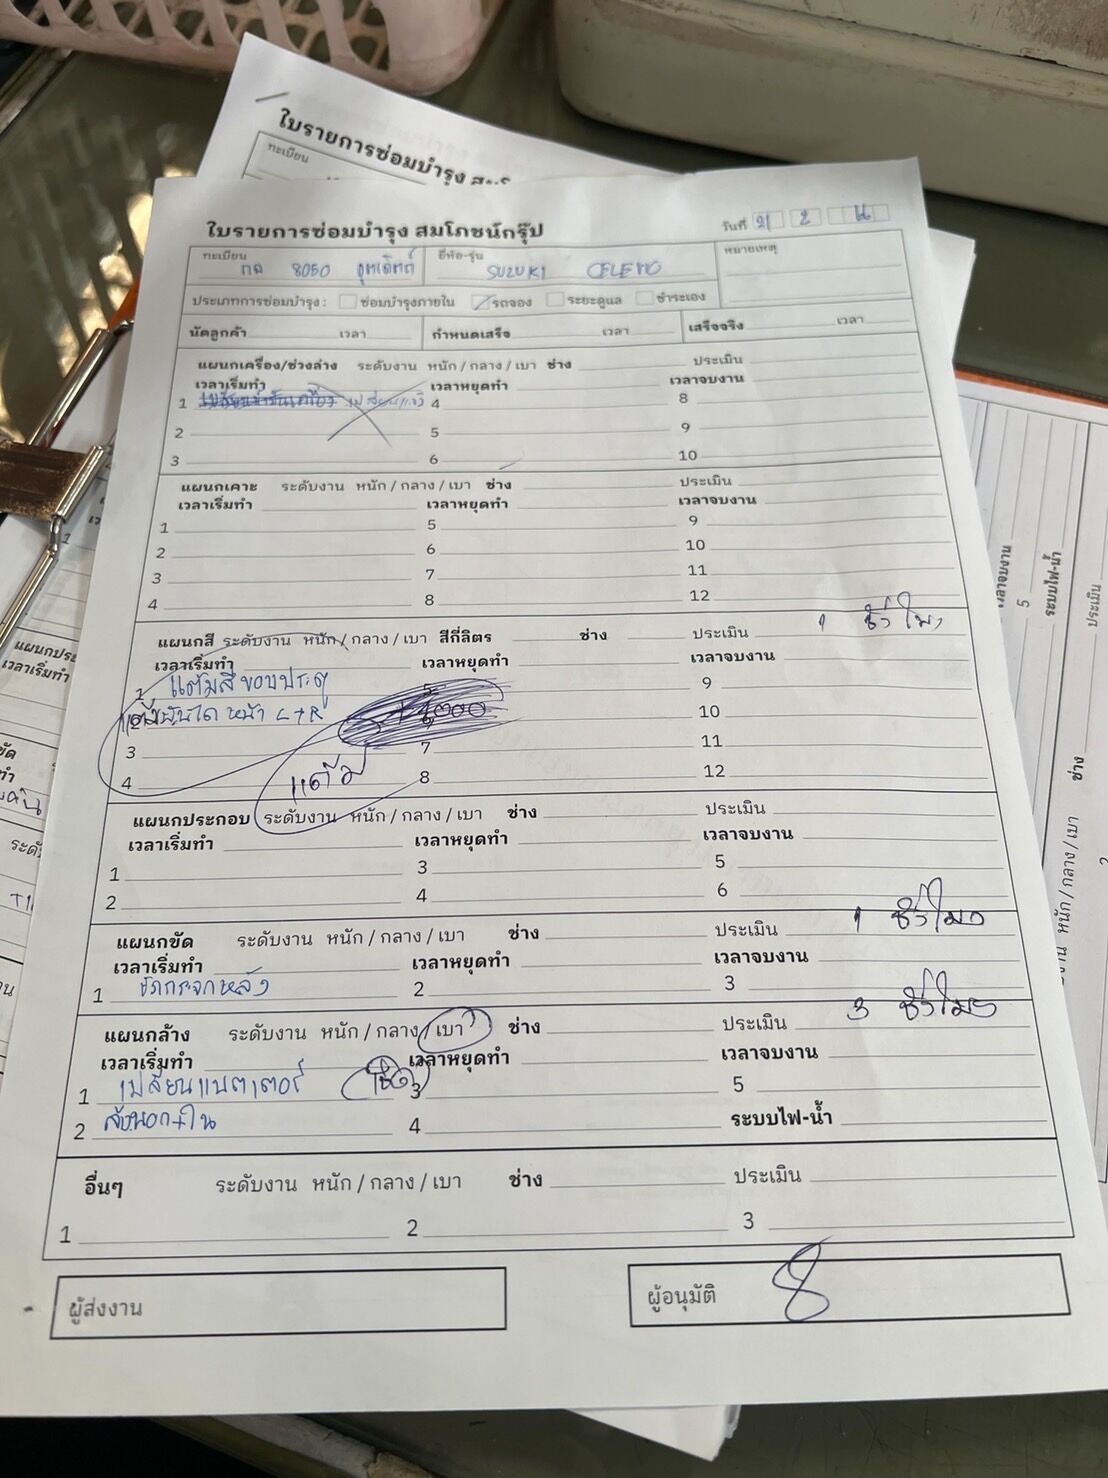 ใบรายการซ่อมบำรุง
ทะเบียน
ใบรายการซ่อมบำรุง สมโภชน์กรุ๊ป
วันที่ 21 2
ทะเบียน กล 8050 อุตรดิตถ์ ยี่ห้อ-รุ่น SUZUKI CELERIO หมายเหตุ
ประเภทการซ่อมบำรุง : ซ่อมบำรุงภายใน รถจอง ระยะดูแล ชำระเอง
นัดลูกค้า เวลา กำหนดเสร็จ เวลา เสร็จจริง เวลา
แผนกเครื่อง/ช่วงล่าง ระดับงาน หนัก / กลาง / เบา ช่าง ประเมิน
เวลาเริ่มทำ เวลาหยุดทำ เวลาจบงาน
1 เปลี่ยนน้ำมันเครื่อง 4 8
2 5 9
3 6 10
แผนกเคาะ ระดับงาน หนัก / กลาง / เบา ช่าง ประเมิน
เวลาเริ่มทำ เวลาหยุดทำ เวลาจบงาน
1 5 9
2 6 10
3 7 11
4 8 12
แผนกสี ระดับงาน หนัก / กลาง / เบา สีกี่ลิตร ช่าง ประเมิน 1 ชั่วโมง
เวลาเริ่มทำ เวลาหยุดทำ เวลาจบงาน
1 แต้มสีขอบประตู 5 9
2 บันได หน้า L+R 10
3 7 11
4 แต้ม 8 12
แผนกประกอบ ระดับงาน หนัก / กลาง / เบา ช่าง ประเมิน
เวลาเริ่มทำ เวลาหยุดทำ เวลาจบงาน
1 3 5
2 4 6
แผนกขัด ระดับงาน หนัก / กลาง / เบา ช่าง ประเมิน 1 ชั่วโมง
เวลาเริ่มทำ เวลาหยุดทำ เวลาจบงาน
1 ขัดกระจกหลัง 2 3
แผนกล้าง ระดับงาน หนัก / กลาง / เบา ช่าง ประเมิน 3 ชั่วโมง
เวลาเริ่มทำ เวลาหยุดทำ เวลาจบงาน
1 เปลี่ยนแบตเตอรี่ 3 5
2 ล้างนอก+ใน 4 ระบบไฟ-น้ำ
อื่นๆ ระดับงาน หนัก / กลาง / เบา ช่าง ประเมิน
1 2 3
ผู้ส่งงาน ผู้อนุมัติ